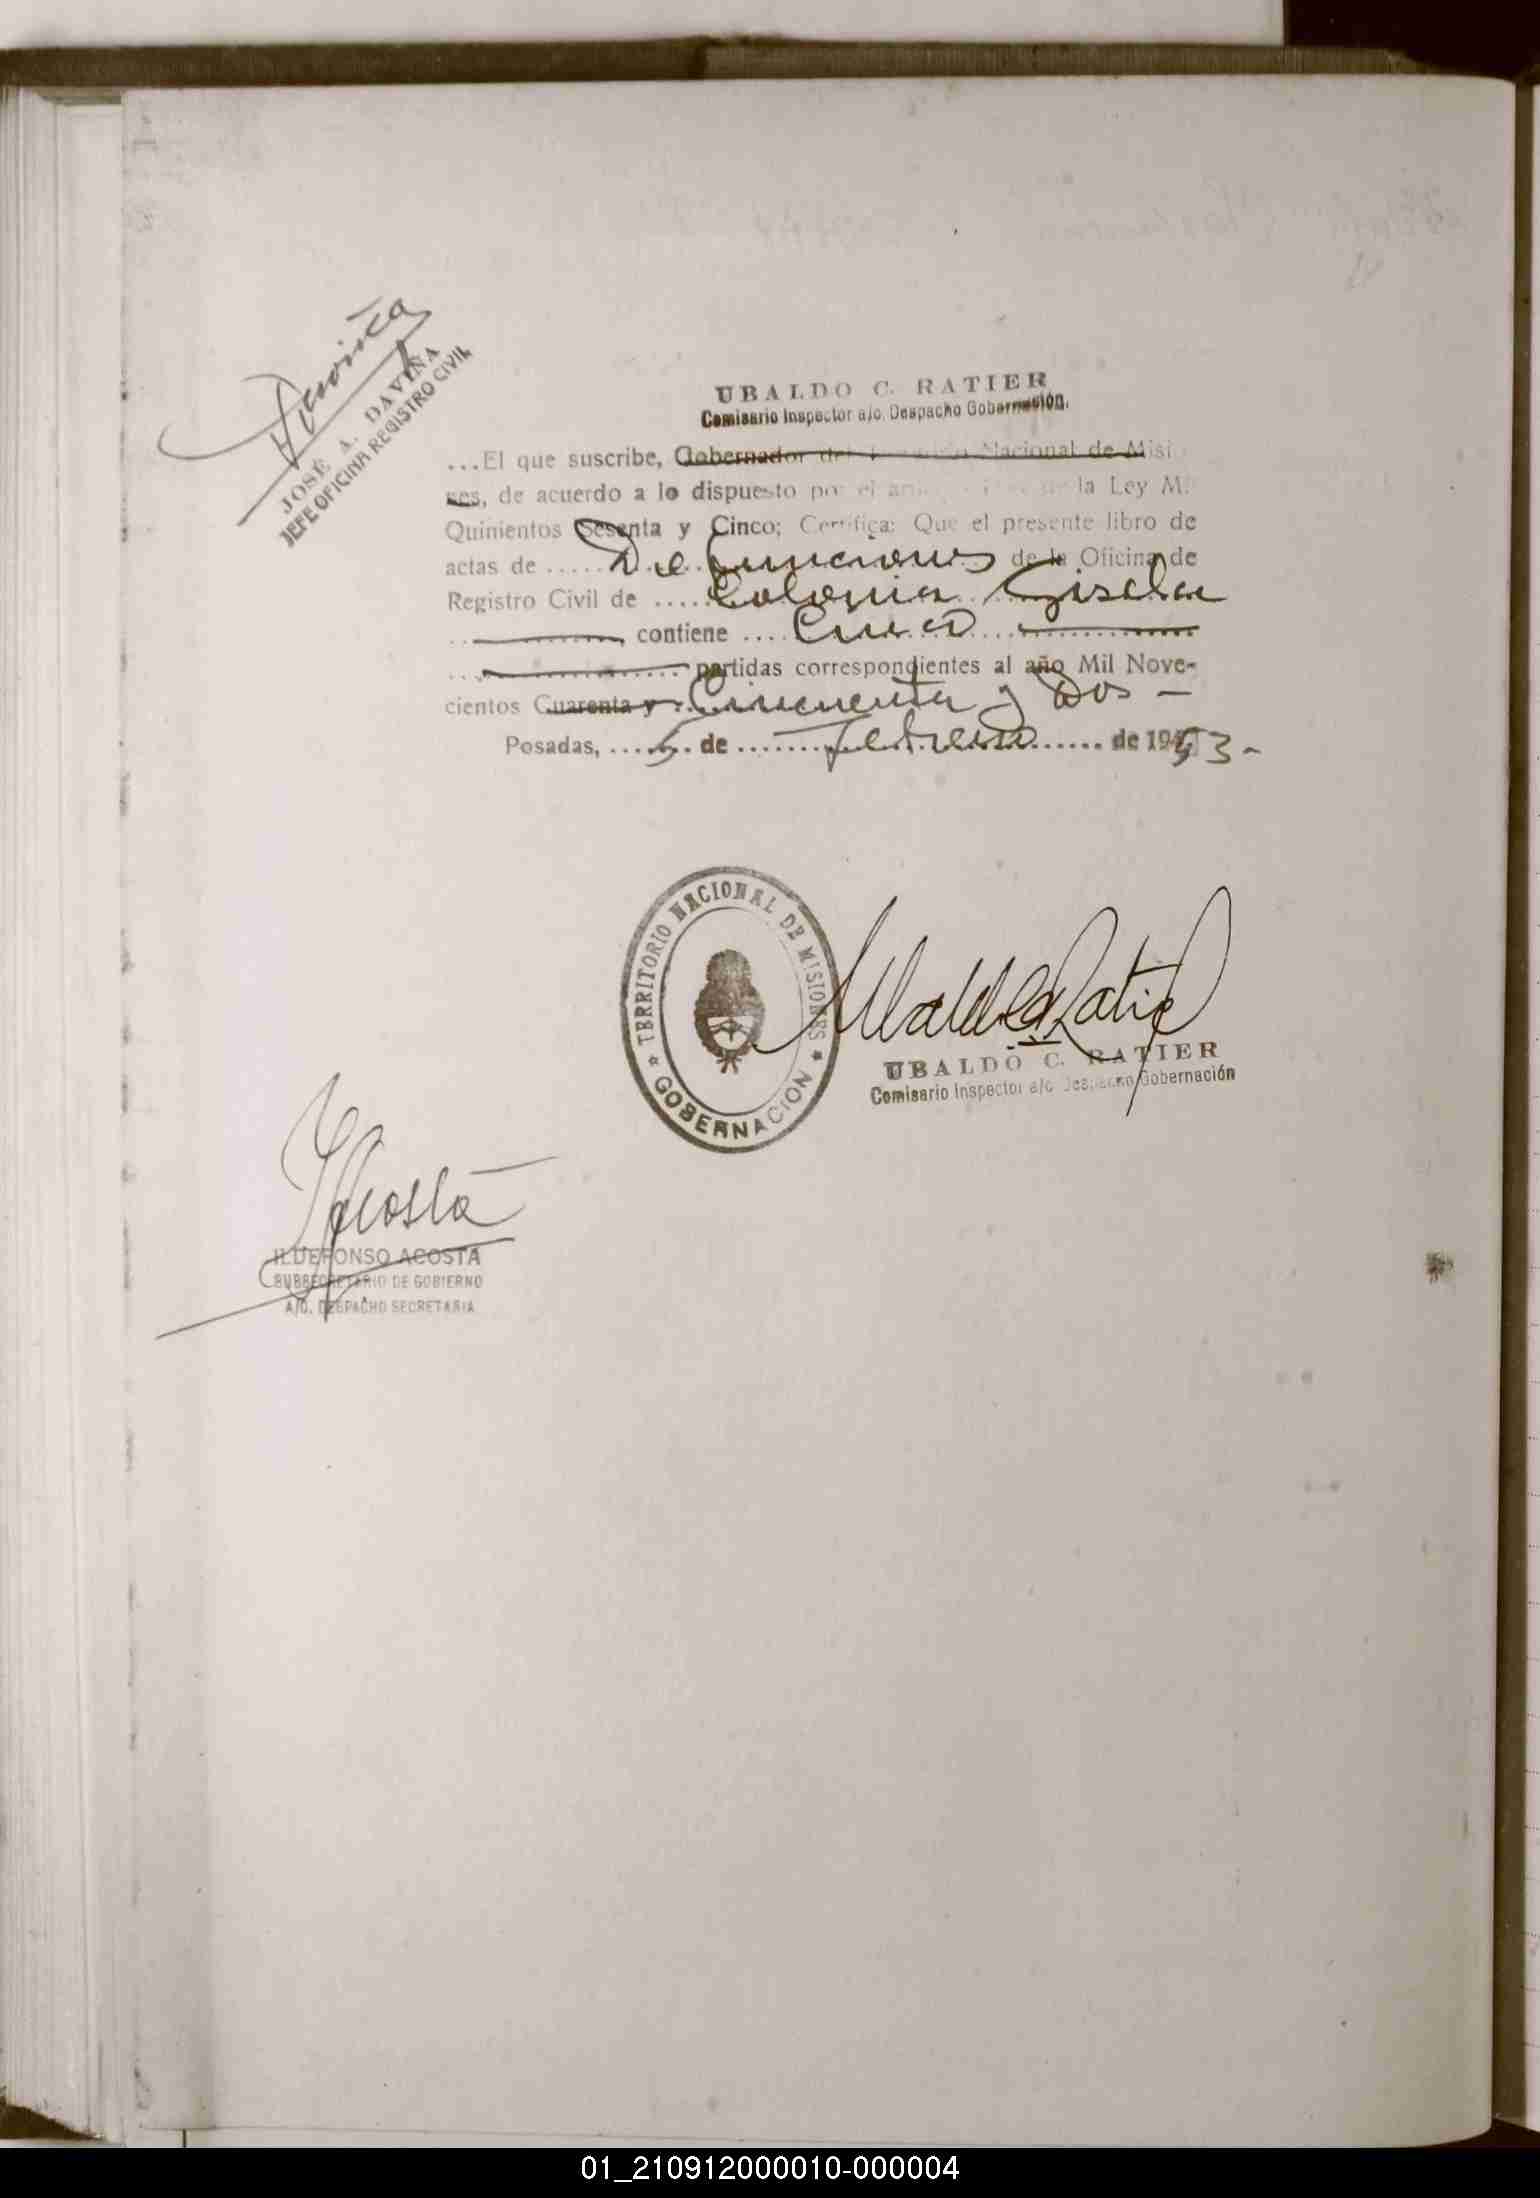 Daviña
JOSÉ A. DAVIÑA
JEFE OFICINA REGISTRO CIVIL
UBALDO C. RATIER
Comisario Inspector a/c. Despacho Gobernación.
...El que suscribe, Gobernador del Nacional de Misi
nes, de acuerdo a lo dispuesto por el de la Ley M.
Quinientos Sesenta y Cinco; Certifica: Que el presente libro de
actas de ..... Defunciones de la Oficina de
Registro Civil de ..... Colonia Gisela
contiene .... Cinco ....
partidas correspondientes al año Mil Nove-
cientos Cuarenta y Cincuenta y Dos –
Posadas, ..... 5 de ..... Febrero ..... de 1953-
TERRITORIO NACIONAL DE MISIONES
GOBERNACION
Ubaldo C. Ratier
UBALDO C. RATIER
Comisario Inspector a/c Despacho Gobernación
IAcosta
ILDEFONSO ACOSTA
SUBSECRETARIO DE GOBIERNO
A/C. DESPACHO SECRETARIA
01_210912000010-000004